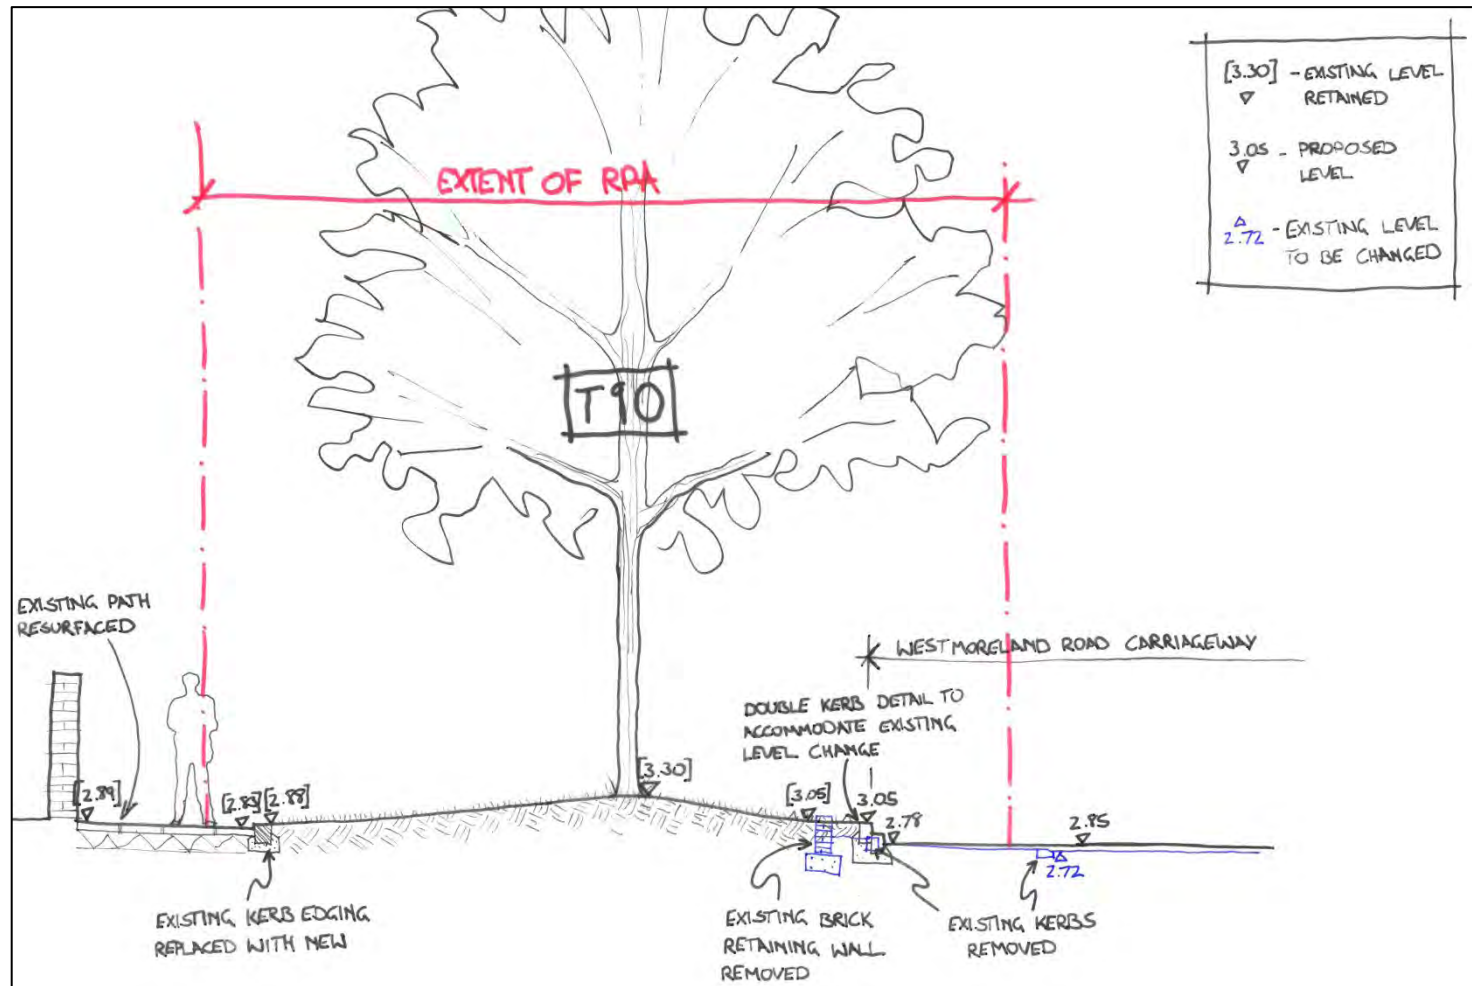 [3.30] - EXISTING LEVEL
RETAINED
3.05 - PROPOSED
LEVEL
2.72 - EXISTING LEVEL
TO BE CHANGED
EXTENT OF RPA
T90
EXISTING PATH
RESURFACED
WESTMORELAND ROAD CARRIAGEWAY
DOUBLE KERB DETAIL TO
ACCOMMODATE EXISTING
LEVEL CHANGE
[2.89]
[2.88]
[3.30]
[3.05]
3.05
2.78
2.85
2.72
EXISTING KERB EDGING
REPLACED WITH NEW
EXISTING BRICK
RETAINING WALL
REMOVED
EXISTING KERBS
REMOVED